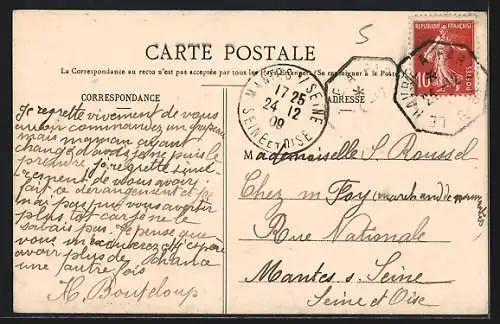 5
CARTE POSTALE
La Correspondance au recto n'est pas acceptée par tous les Pays Étrangers. (Se renseigner à la Poste)
CORRESPONDANCE
ADRESSE
MANTES S. SEINE
17 25
24 12
09
SEINE ET OISE
RÉPUBLIQUE FRANÇAISE
POSTES
LE HAVRE A PARIS
Je regrette vivement de vous
avoir commandez un
mais maman ayant
changé d'avis je ne puis le
prendre je regrette
de vous avoir
fait ce dérangement et je
n'ai pas pus vous avertir
plus tôt car je ne le
savais pas. Je pense que
vous m'excuserez et j'espère
avoir plus de chance
une autre fois
H. Bouteloup
Mademoiselle S. Roussel
Chez m Foy (marchand de
Rue Nationale
Mantes s. Seine
Seine et Oise